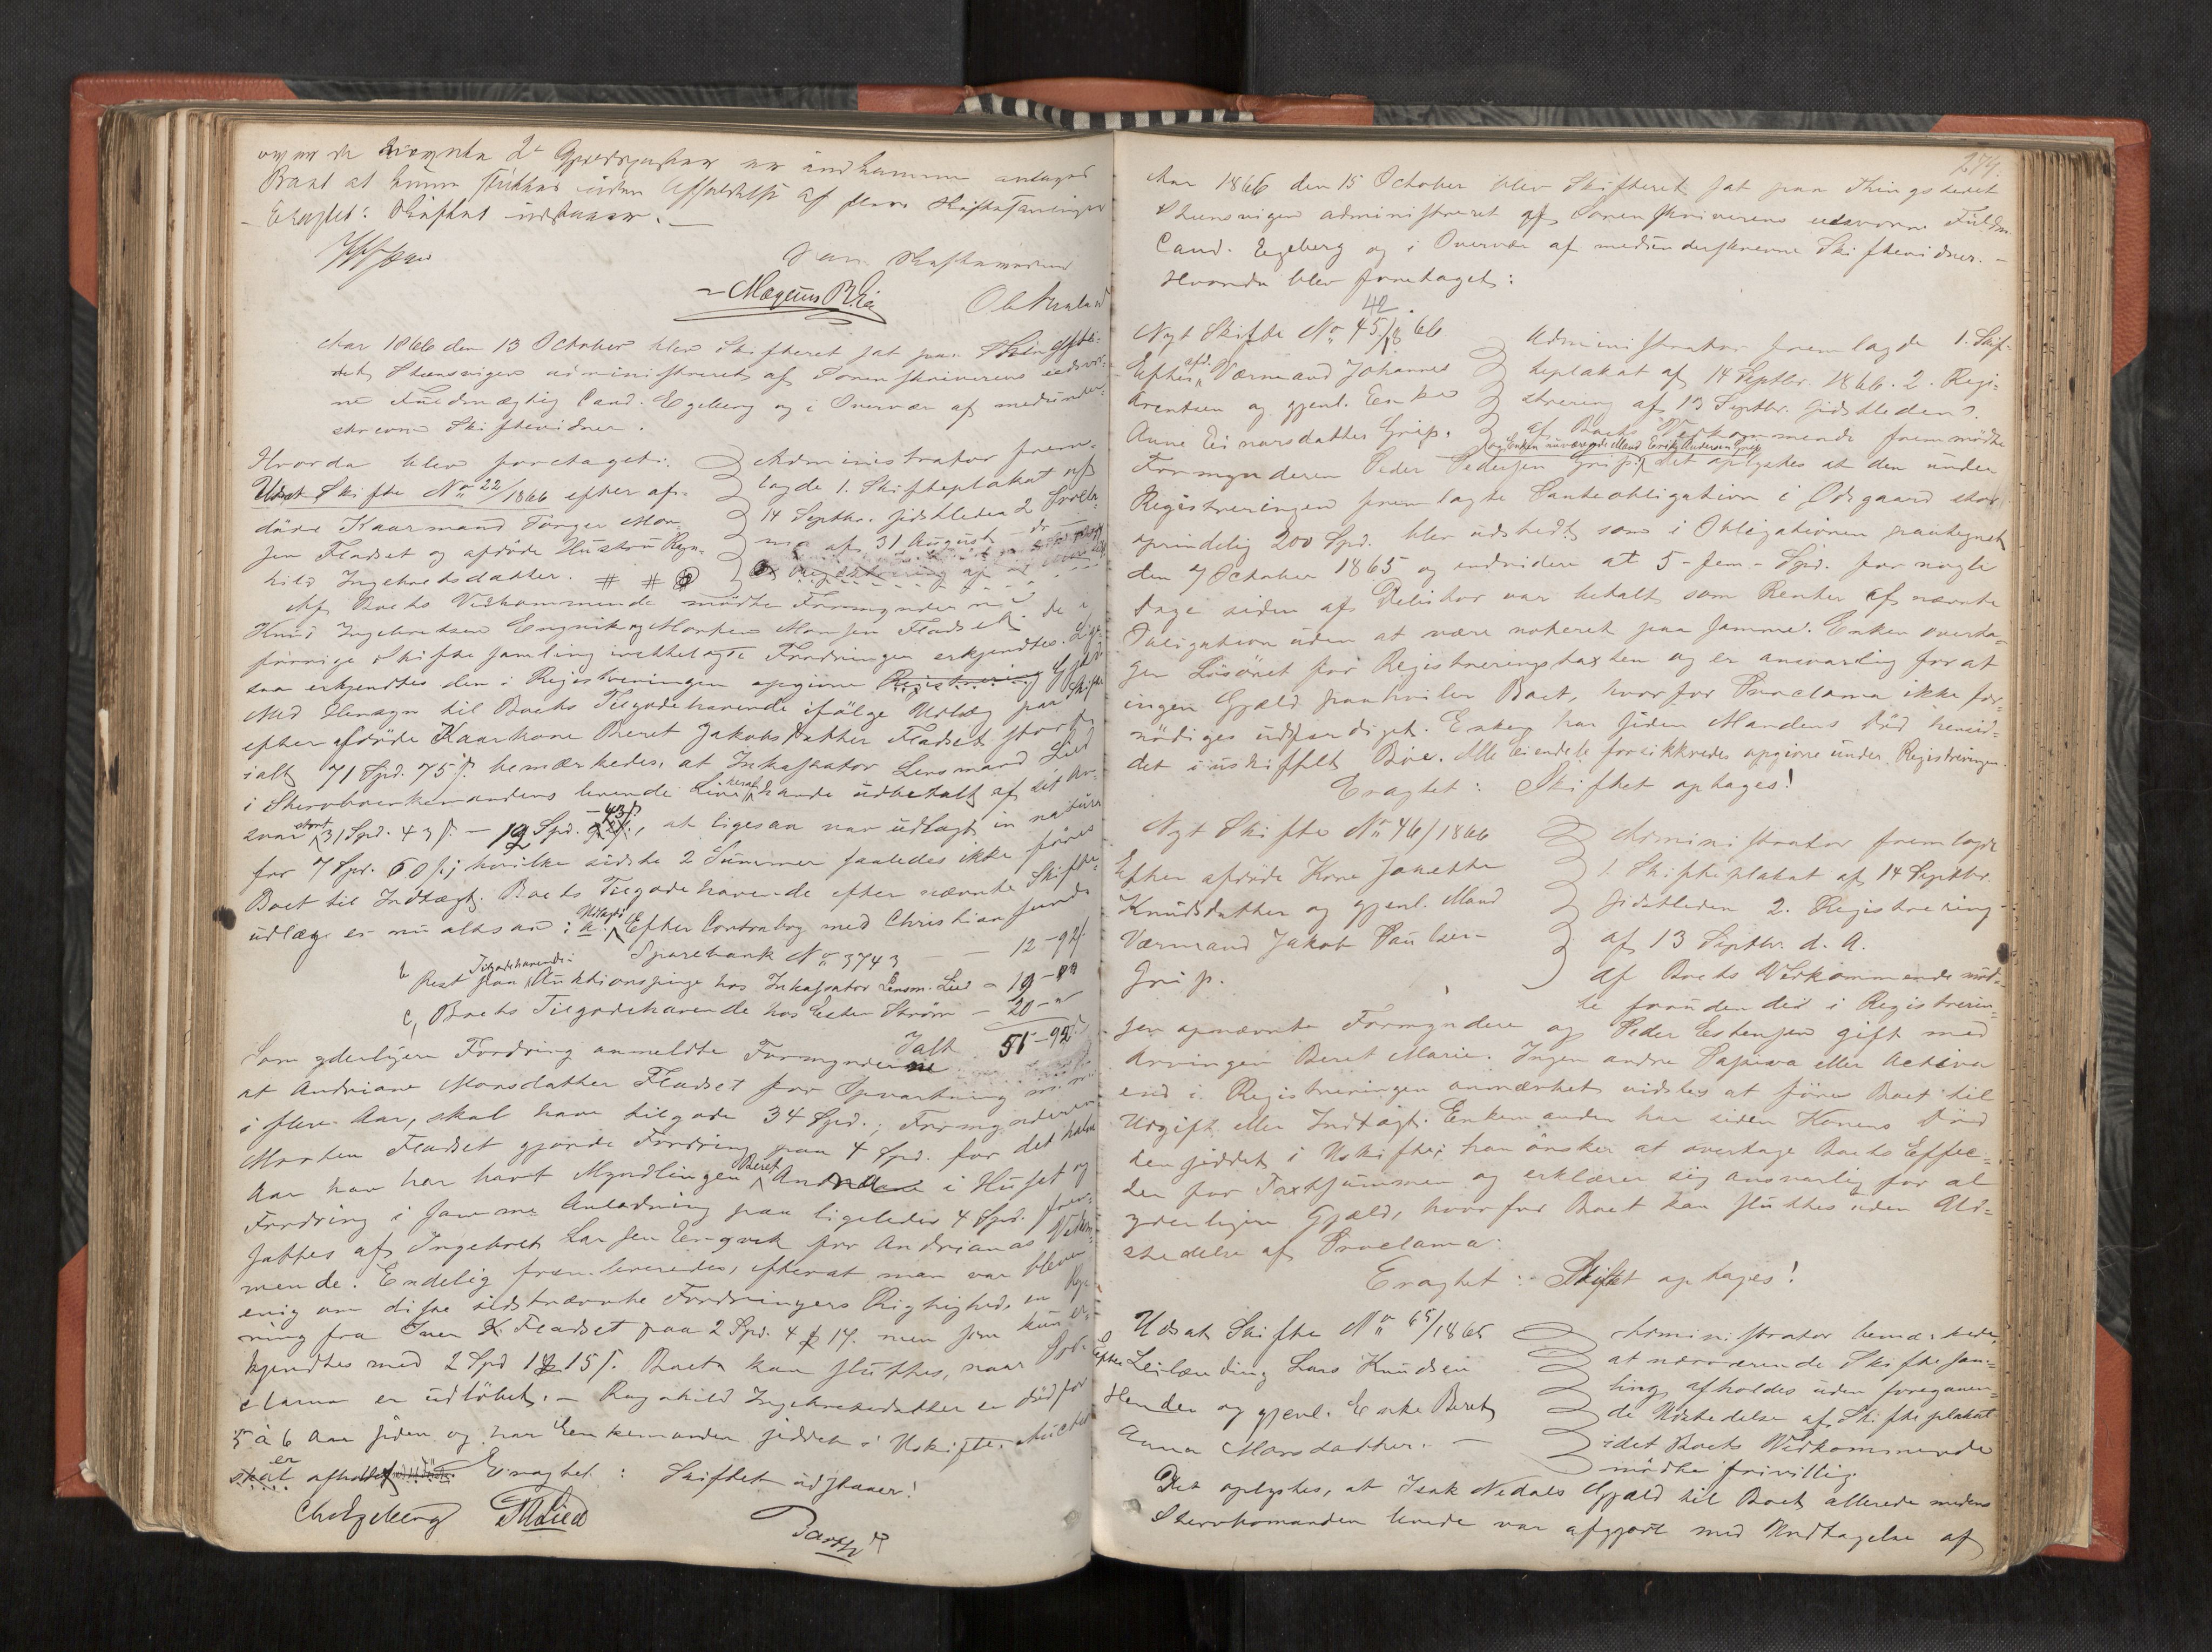 Boet at kunne sluttes uden Afholdelse af flere Skiftesamlinger
Eragtet: Skiftet udstaaer.
som Skiftevidner
Magnus Lie
Aar 1866 den 13 October blev Skifteret sat paa Thingste-
det Steensvigen administreret af Sorenskriverens edsvor-
ne Fuldmægtig Cand. Egeberg og i Overvær af medunder-
skrevne Skiftevidner.
Hvorda blev foretaget:
Udsat Skifte No 22/1866 efter af-
døde Kaarmand Torger Mon-
sen Fladset og afdøde Hustru Ragn-
hild Ingebretsdatter. # #
Administrator frem-
lagde 1. Skifteplakat af
14 Septbr. sidstleden 2 Procla-
ma af 31 August
Registrering af
Af Boets Vedkommende mødte Formynderne
Knud Ingebretsen Engvik og Morten Monsen Fladset. De i
forrige Skiftesamling irettelagte Fordringer erkjendtes. Lige-
saa erkjendtes den i Registreringen opgivne Registrering Gjæld
Med Hensyn til Boets Tilgodehavende ifølge Udlæg paa Skifte
efter afdøde Kaarkone Beret Jakobsdatter Fladset stort
ialt 71 Spd. 75 s. bemærkedes, at Inkassator Lensmand Lied
i Stervboenkemandens levende Live havde udbetalt af sit An-
svar stort 31 Spd. 43 s. - 12 Spd. 43 s., at ligesaa var udlagt in natura
for 7 Spd. 60 s; hvilke sidste 2 Summer saaledes ikke føres
Boet til Indtægt. Boets Tilgodehavende efter nævnte Skifte-
udlæg er nu altsaa: a. Udlagt Efter Contrabog med Christiansunds
Sparebank No 3743 - - 12 - 92
b Rest Tilgodehavende paa Auktionspenge hos Inkassator Lensm. Lied - 19 - "
c, Boets Tilgodehavende hos Esten Strøm - 20 - "
Ialt 51 - 92
Som yderligere Fordring anmeldte Formynderne
at Andriane Monsdatter Fladset for Opvartning
i flere Aar, skal have tilgode 34 Spd.; Formynderen
Morten Fladset gjorde Fordring paa 4 Spd. for det halve
Aar han har havt Myndlingen Beret Andriane i Huset og
Fordring i samme Anledning paa ligeledes 4 Spd. frem-
sattes af Ingebret Larsen Engvik for Andrianas Vedkom-
mende. Endelig fremleveredes, efterat man var bleven
enig om disse sidstnævnte Fordringers Rigtighed, en Reg-
ning fra Iver K. Fladset paa 2 Spd. 4 17. men som kun er-
kjendtes med 2 Spd 1 15 s. Boet kan sluttes, naar Pro-
clama er udløbet. - Ragnhild Ingebretsdatter er død for
5 à 6 Aar siden og har Enkemanden siddet i Uskifte. Auction
skal er afholdt Eragtet: Skiftet udstaaer!
Ch Egeberg Lied
274.
Aar 1866 den 15 October blev Skifteret sat paa Thingstedet
Steensvigen administreret af Sorenskriverens edsvorne Fuldm.
Cand. Egeberg og i Overvær af medunderskrevne Skiftevidner. -
Hvorda blev foretaget:
42
Nyt Skifte No 45/1866
Efter afd. Værmand Johannes
Arentsen og gjenl. Enke
Anne Einarsdatter Grip.
Administrator fremlagde 1. Skif-
teplakat af 14 Septbr. 1866. 2. Regi-
strering af 13 Septbr. sidstleden.
Af Boets Vedkommende fremmødte
og Enken nuværende Mand Erik Andersen Grip
Formynderen Peder Pedersen Grip. Det oplystes at den under
Registreringen fremlagte Panteobligation i Odsgaard stor
oprindelig 200 Spd. blev udstedt som i Obligationen paategnet
den 7 October 1865 og endvidere at 5 - fem - Spd. for nogle
Dage siden af Debitor var betalt som Renter af nævnte
Obligation uden at være noteret paa samme. Enken overta-
ger Løsøret for Registreringstaxten og er ansvarlig for at
ingen Gjæld paahviler Boet, hvorfor Proclama ikke for-
nødiges udfærdiget. Enken har siden Mandens Død hensid-
det i uskiftet Boe. Alle Eiendele forsikkredes opgivne under Registreringen.
Eragtet: Skiftet optages!
Nyt Skifte No 46/1866
Efter afdøde Kone Janetta
Knudsdatter og gjenl. Mand
Værmand Jakob Paulsen
Grip.
Administrator fremlagde
1 Skifteplakat af 14 Septbr.
sidstleden 2. Registrering
af 13 Septbr. d. A.
Af Boets Vedkommende mød-
te foruden den i Registrerin-
gen opnævnte Formyndere og Peder Estensen gift med
Arvingen Beret Marie. Ingen andre Passiva eller Activa
end i Registreringen anmærket vidstes at føres Boet til
Udgift eller Indtægt. Enkemanden har siden Konens Død
hensiddet i Uskifte; han ønsker at overtage Boets Effec-
ter for Taxtsummen og erklærer sig ansvarlig for al
yderligere Gjæld, hvorfor Boet kan sluttes uden Ud-
stedelse af Proclama:
Eragtet: Skiftet optages!
Udsat Skifte No 65/1865
Efter Leilænding Lars Knudsen
Hender og gjenl. Enke Beret
Anna Monsdatter. -
Administrator bemærkede,
at nærværende Skiftesam-
ling afholdes uden foregaaen-
de Udstedelse af Skifteplakat
idet Boets Vedkommende
mødte frivillig.
Det oplystes, at Isak Nedals Gjæld til Boet allerede medens
Stervbomanden levede var afgjort med Undtagelse af